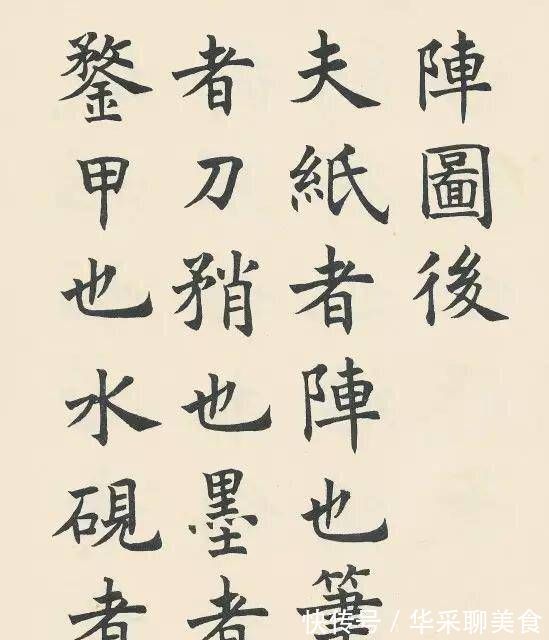 陣圖後
夫紙者陣也筆
者刀矟也墨者
鍪甲也水硯者
快传号/华采聊美食